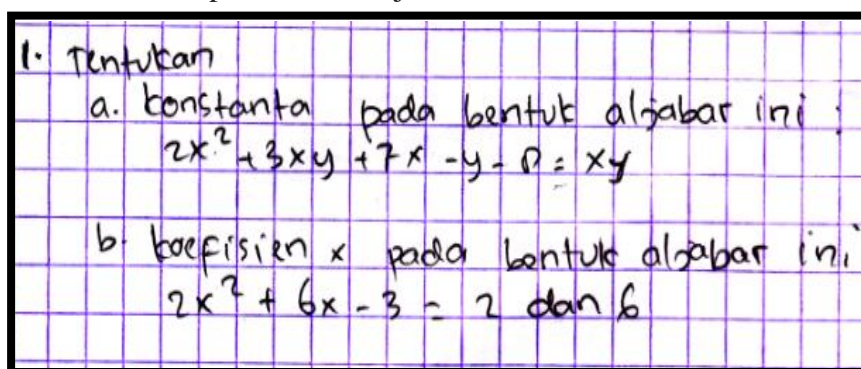 1. Tentukan
a. konstanta pada bentuk aljabar ini :
2x² + 3xy + 7x - y - 8 = xy
b. koefisien x pada bentuk aljabar ini
2x² + 6x - 3 = 2 dan 6